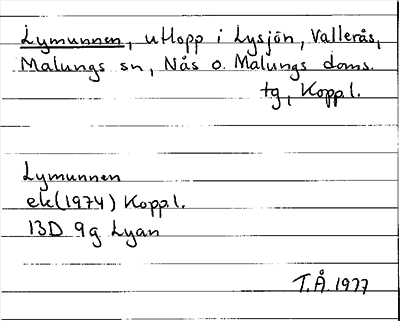 Lymunnen, utlopp i Lysjön, Vallerås,
Malungs sn, Nås o. Malungs doms.
tg, Kopp.l.
Lymunnen
ek (1974) Kopp.l.
13D 9g Lyan
T.Å. 1977